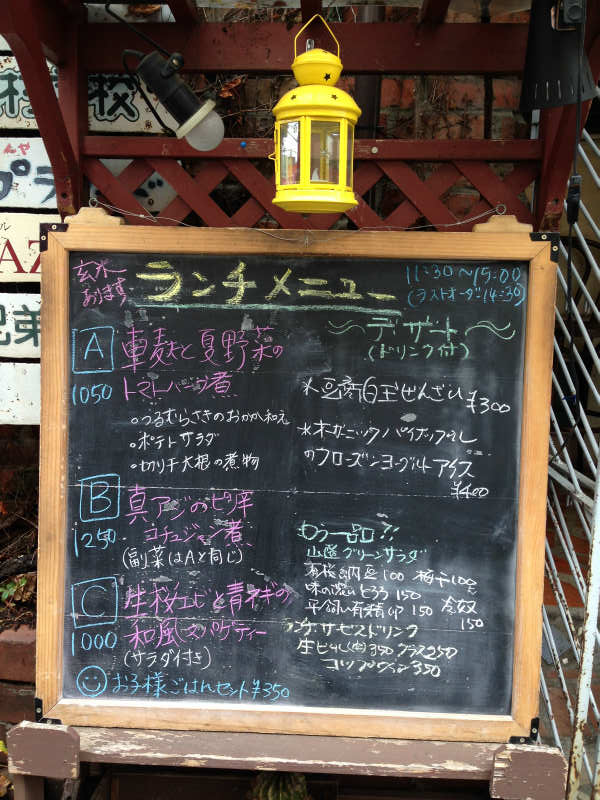 校
プラ
AZ
兄弟
玄米
あります
ランチメニュー
11:30〜15:00
(ラストオーダー14:30)
A
1050
車麸と夏野菜の
トマトハーブ煮
○つるむらさきのおかか和え
• ポテトサラダ
• 切り干大根の煮物
B
1250
真アジのピリ辛
コチュジャン煮
(副菜はAと同じ)
C
1000
生桜エビと青ネギの
和風スパゲティー
(サラダ付き)
お子様ごはんセット¥350
〜デザート〜
(ドリンク付)
*豆腐白玉ぜんざい ¥300
*オーガニックパイナップル
のフローズンヨーグルトアイス
¥400
もう一品!!
グリーンサラダ
有機納豆100 梅干100
味の濃いとろろ150
平飼い有精卵150 冷奴
150
ランチ・サービスドリンク
生ビール(中)350 グラス250
350